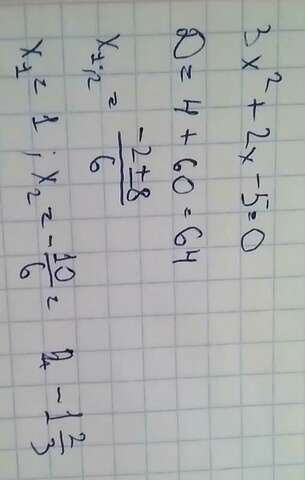 3x² + 2x - 5 = 0
D = 4 + 60 = 64
x₁,₂ = (-2 ± 8)/6
x₁ = 1 ; x₂ = -10/6 = -1 2/3